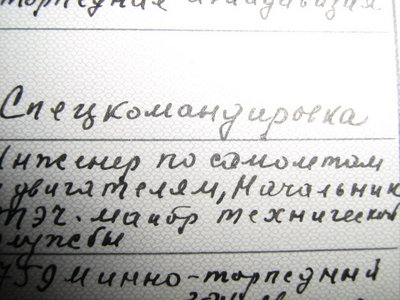 торпедная авиадивизия
Спецкомандировка
Инженер по самолетам
и двигателям, Начальник
ТЭЧ. майор технической
службы
759 минно-торпедный